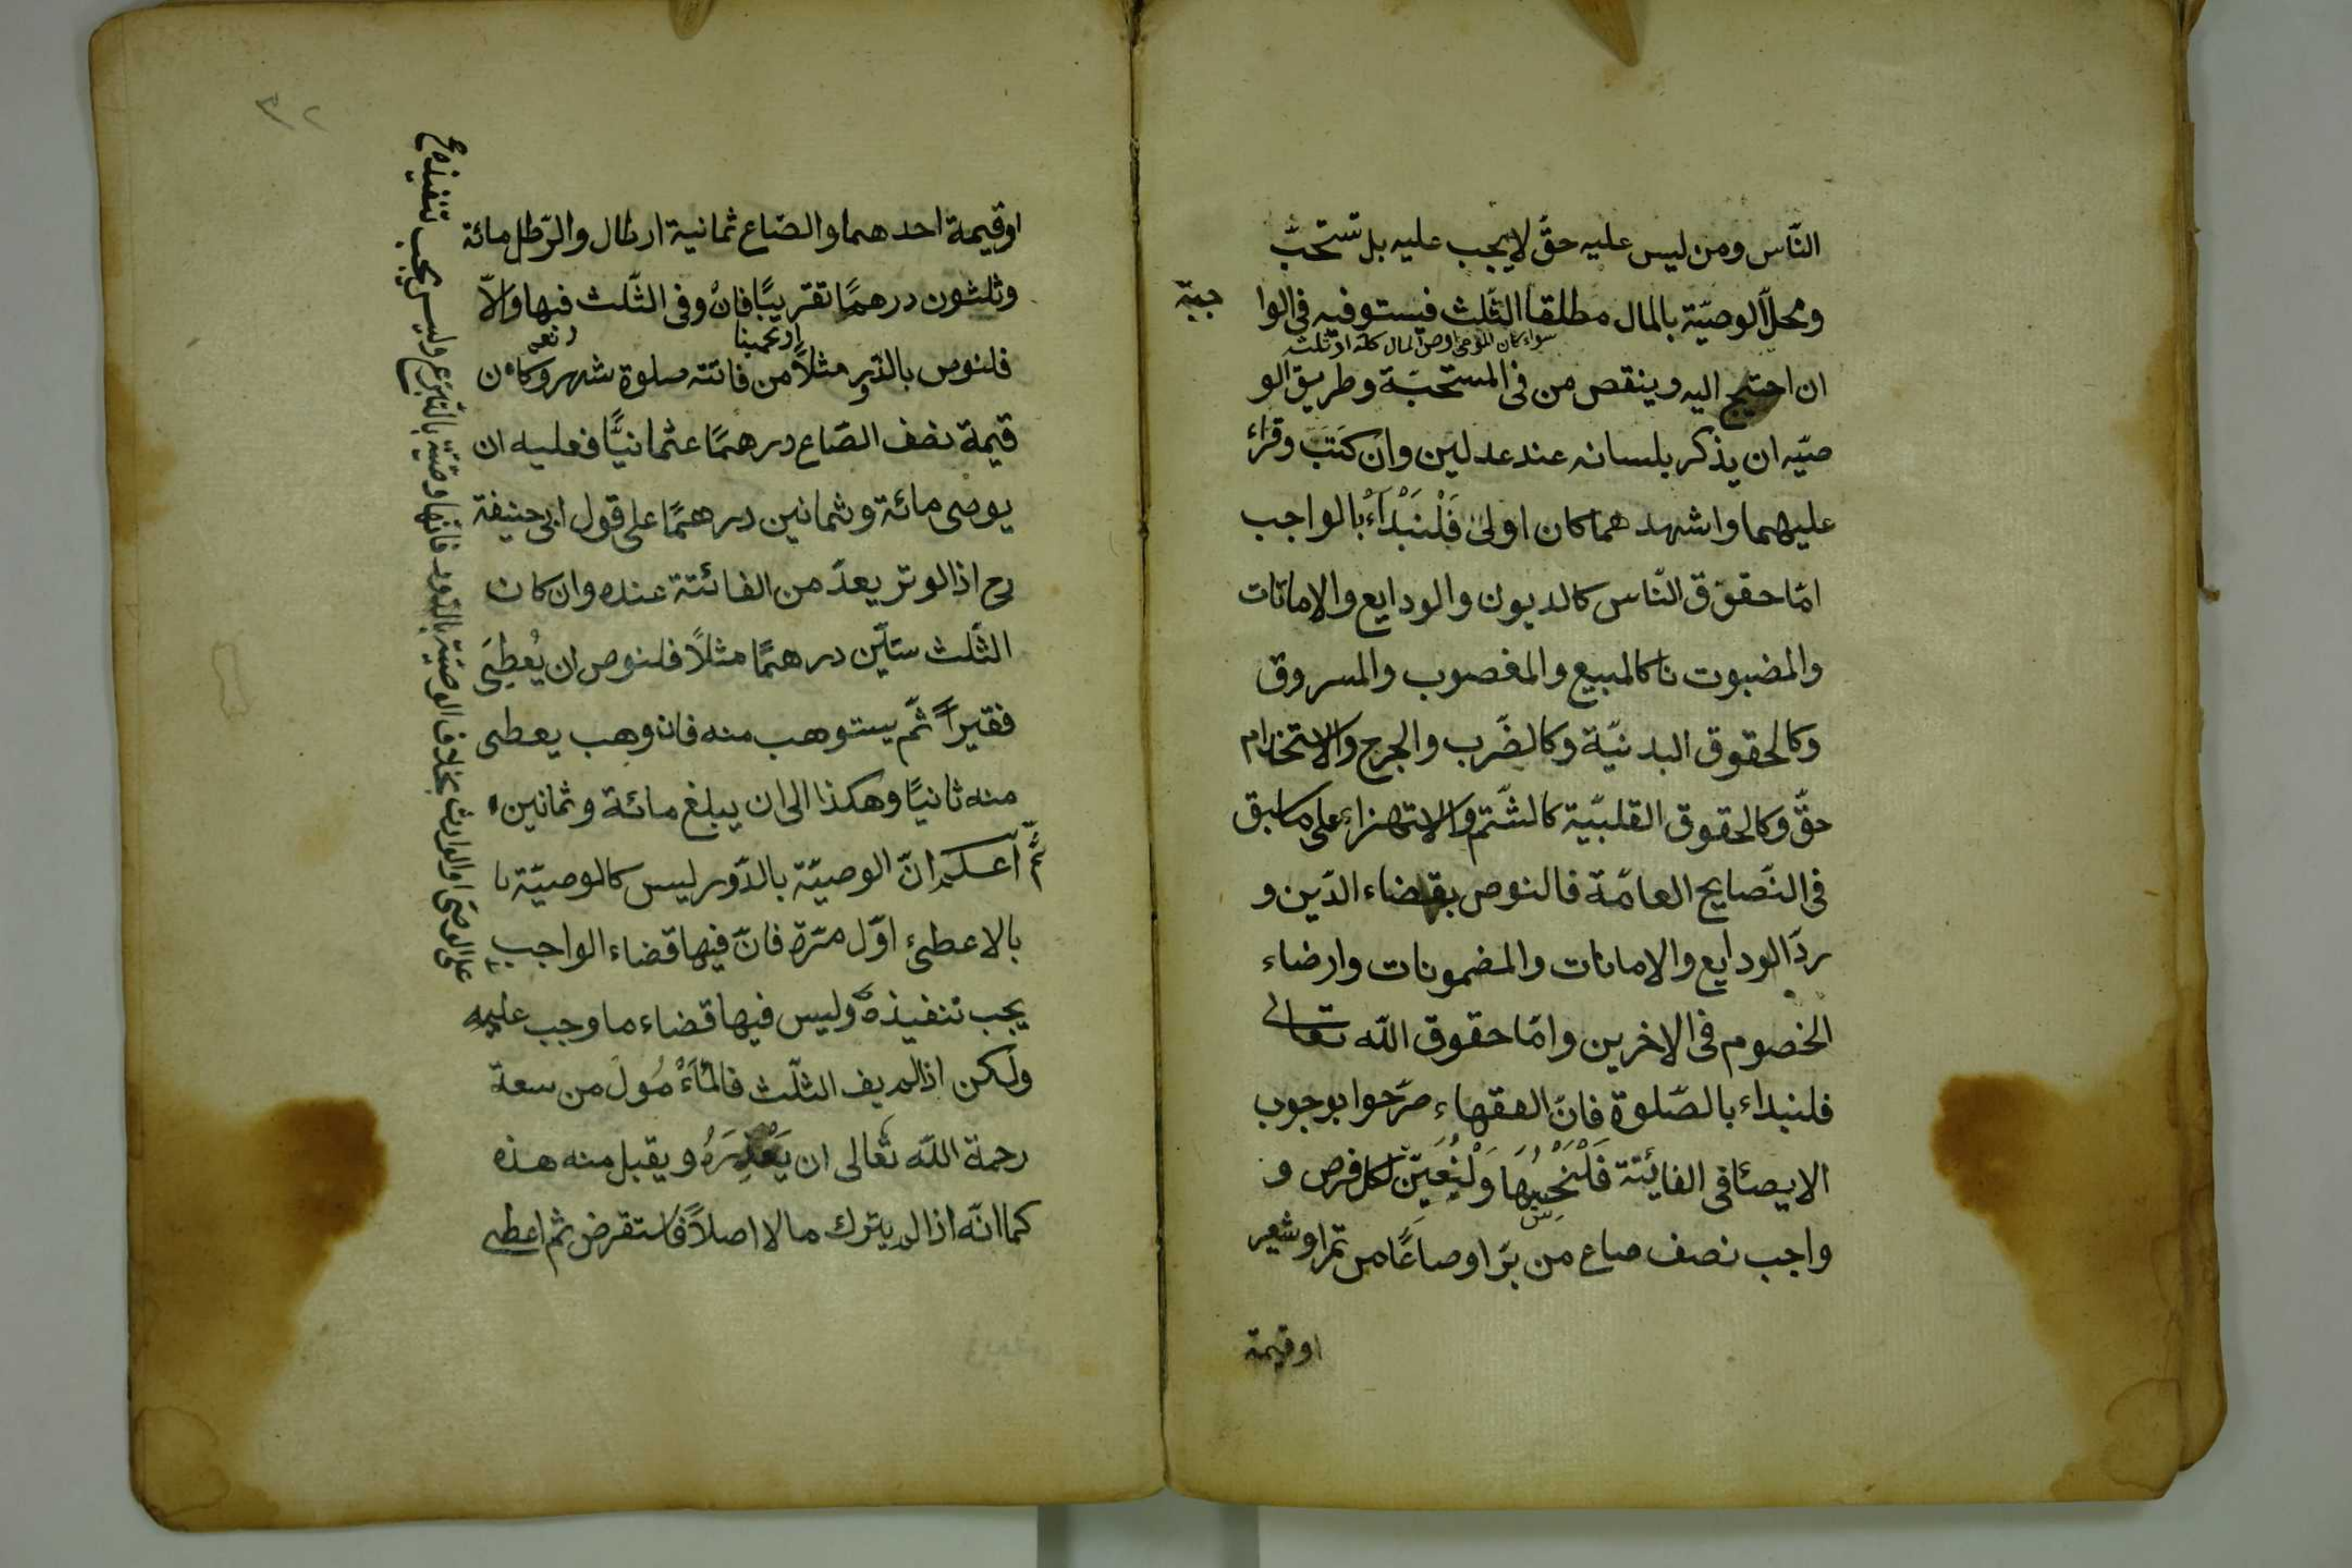 النّاس ومن ليس عليه حقّ لا يجب عليه بل تستحبّ
ومحلّ الوصيّة بالمال مطلقا الثّلث فيستوفيه فى الوا جبة
سواء كان الموصى اوصى المال كلّه او ثلثه
ان احتيج اليه وينقص من فى المستحبّة وطريق الو
صيّه ان يذكر بلسانه عند عدلين وان كَتَبَ وقراء
عليهما واشهدهما كان اولىٰ فَلْنَبْدَاْء بالواجب
امّا حقوق النّاس كالديون والودايع والامانات
والمضبوت نا كالمبيع والمغصوب والمسروق
وكالحقوق البدنيّة وكالضّرب والجرح والاستخدام
حقّ وكالحقوق القلبيّة كالشّتم والاستهزاء على ما سبق
فى النّصايح العامّة فالنوص بقضاء الدّين و
ردّ الودايع والامانات والمضمونات وارضاء
الخصوم فى الاخرين وامّا حقوق اللّه تعالى
فلنبداء بالصّلوة فانّ الفقهاء صرّحوا بوجوب
الايصئا فى الفايئتة فَلْنَحْسِبُهَا وَلْنُعَيِّنْ لكل فرض و
واجب نصف صاع من برّ او صاعًا من تمر او شعير
او قيمة
٣٢
او قيمة احدهما والصّاع ثمانية ارطال والرّطل مائة
وثلثون درهمًا تقريبًا فانْ وفى الثّلث فبها والّا
او تخمينا
فلنوص بالدّور مثلاً من فائتته صلوة شهر وكان
قيمة نصف الصّاع درهمًا عثمانيًّا فعليه ان
يوصى مائة وثمانين درهمًا على قول ابى حنيفة
رح اذ الوتر يعدّ من الفائتة عنده وان كان
الثّلث ستّين درهمًا مثلاً فلنوص ان يُعْطِىَ
فقيراً ثمّ يستوهب منه فان وهب يعطى
منه ثانيًا وهكذا الى ان يبلغ مائة وثمانين
ثمّ اعلم انّ الوصيّة بالدّور ليس كالوصيّة با
بالاعطىء اوّل مرّة فانّ فيها قضاء الواجب
يجب تنفيذه وليس فيها قضاء ما وجب عليه
ولكن اذا لم يف الثلث فالْمَأْمُولُ من سعة
رحمة اللّه تعالى ان يَعْذِرَهُ ويقبل منه هذه
كما انّه اذا لم يترك مالا اصلاً فاستقرض ثم اعطى
على الوصىّ او الوارث بخلاف الوصيّة بالدّور فانّها وصيّة بالتّبرّع وليس يجب تنفيذه